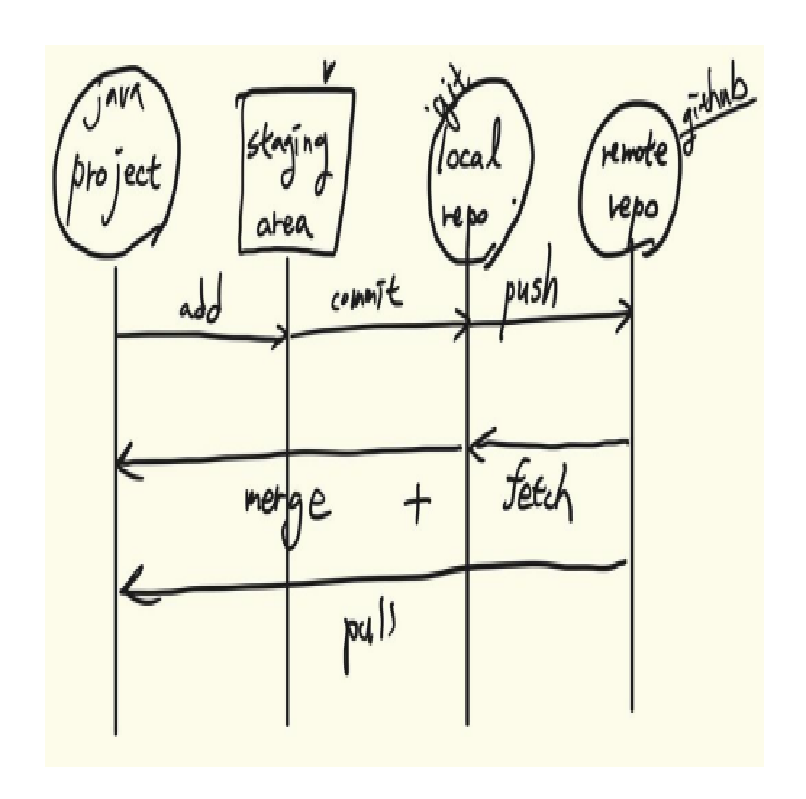 java
project
staging
area
git
local
repo
github
remote
repo
add
commit
push
merge + fetch
pull